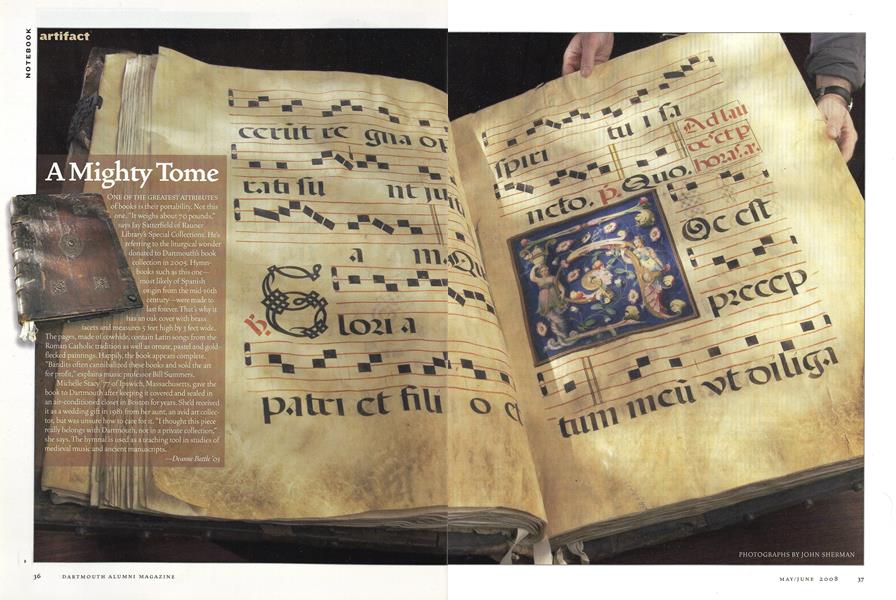 NOTEBOOK
artifact
A Mighty Tome
ONE OF THE GREATEST ATTRIBUTES
of books is their portability. Not this
one. "It weighs about 70 pounds,"
says Jay Satterfield of Rauner
Library's Special Collections. He's
referring to the liturgical wonder
donated to Dartmouth's book
collection in 2005. Hymn-
books such as this one—
most likely of Spanish
origin from the mid-16th
century—were made to
last forever. That's why it
has an oak cover with brass
facets and measures 5 feet high by 3 feet wide.
The pages, made of cowhide, contain Latin songs from the
Roman Catholic tradition as well as ornate, pastel and gold-
flecked paintings. Happily, the book appears complete.
"Bandits often cannibalized these books and sold the art
for profit," explains music professor Bill Summers.
Michelle Stacy '77 of Ipswich, Massachusetts, gave the
book to Dartmouth after keeping it covered and sealed in
an air-conditioned closet in Boston for years. She'd received
it as a wedding gift in 1981 from her aunt, an avid art collec-
tor, but was unsure how to care for it. "I thought this piece
really belongs with Dartmouth, not in a private collection,"
she says. The hymnal is used as a teaching tool in studies of
medieval music and ancient manuscripts.
—Deanne Battle '03
cerūt re gna o
rati su nt ju
a m Qu
℟. Gloria
patri et fili o et
spiri tu i sa
ncto. p. Quo.
Ad lau
horas. a.
Oc est
precep
tum meū vt diliga
PHOTOGRAPHS BY JOHN SHERMAN
36 DARTMOUTH ALUMNI MAGAZINE
MAY/JUNE 2008 37